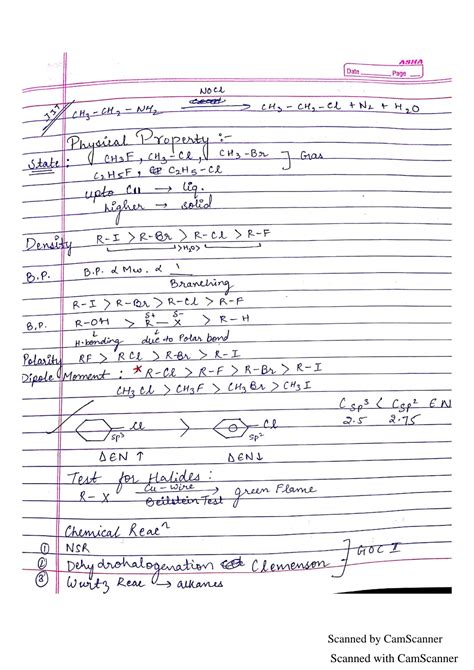 ASHA
Date Page
NOCl
CH3-CH2-NH2 → CH3-CH2-Cl + N2 + H2O
Physical Property :-
State : CH3F, CH3-Cl, CH3-Br ] Gas
C2H5F, C2H5-Cl
upto C11 → liq.
higher → solid
Density R-I > R-Br > R-Cl > R-F
> H2O >
B.P. B.P. α Mw. α 1
Branching
R-I > R-Br > R-Cl > R-F
δ+ δ-
B.P. R-OH > R-X > R-H
↓ ↓
H-bonding due to Polar bond
Polarity RF > RCl > R-Br > R-I
Dipole Moment : *R-Cl > R-F > R-Br > R-I
CH3Cl > CH3F > CH3Br > CH3I
Csp3 < Csp2 E.N
2.5 2.75
Cl > Cl
sp3 sp2
ΔEN ↑ ΔEN↓
Test for Halides :
R-X Cu-Wire → green Flame
Beilstein Test
Chemical Reacn
① NSR
② Dehydrohalogenation Clemenson ] GOC I
③ Wurtz Reac → alkanes
Scanned by CamScanner
Scanned with CamScanner